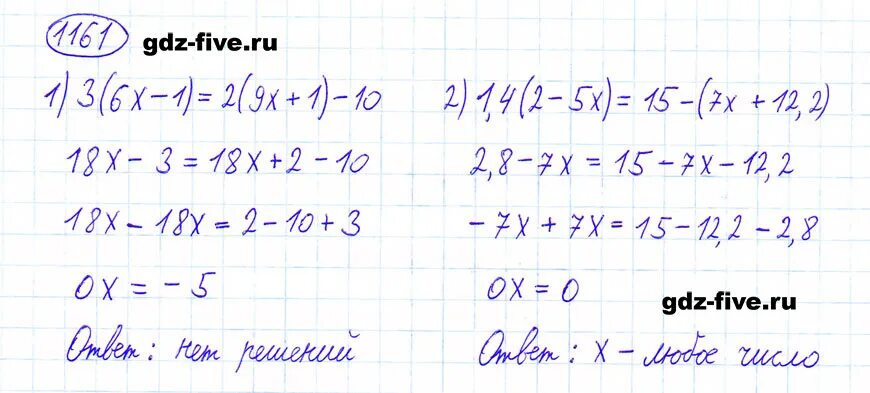 1161 gdz-five.ru
1) 3(6x-1)=2(9x+1)-10
18x-3=18x+2-10
18x-18x=2-10+3
0x=-5
Ответ: нет решений
2) 1,4(2-5x)=15-(7x+12,2)
2,8-7x=15-7x-12,2
-7x+7x=15-12,2-2,8
0x=0
gdz-five.ru
Ответ: x-любое число